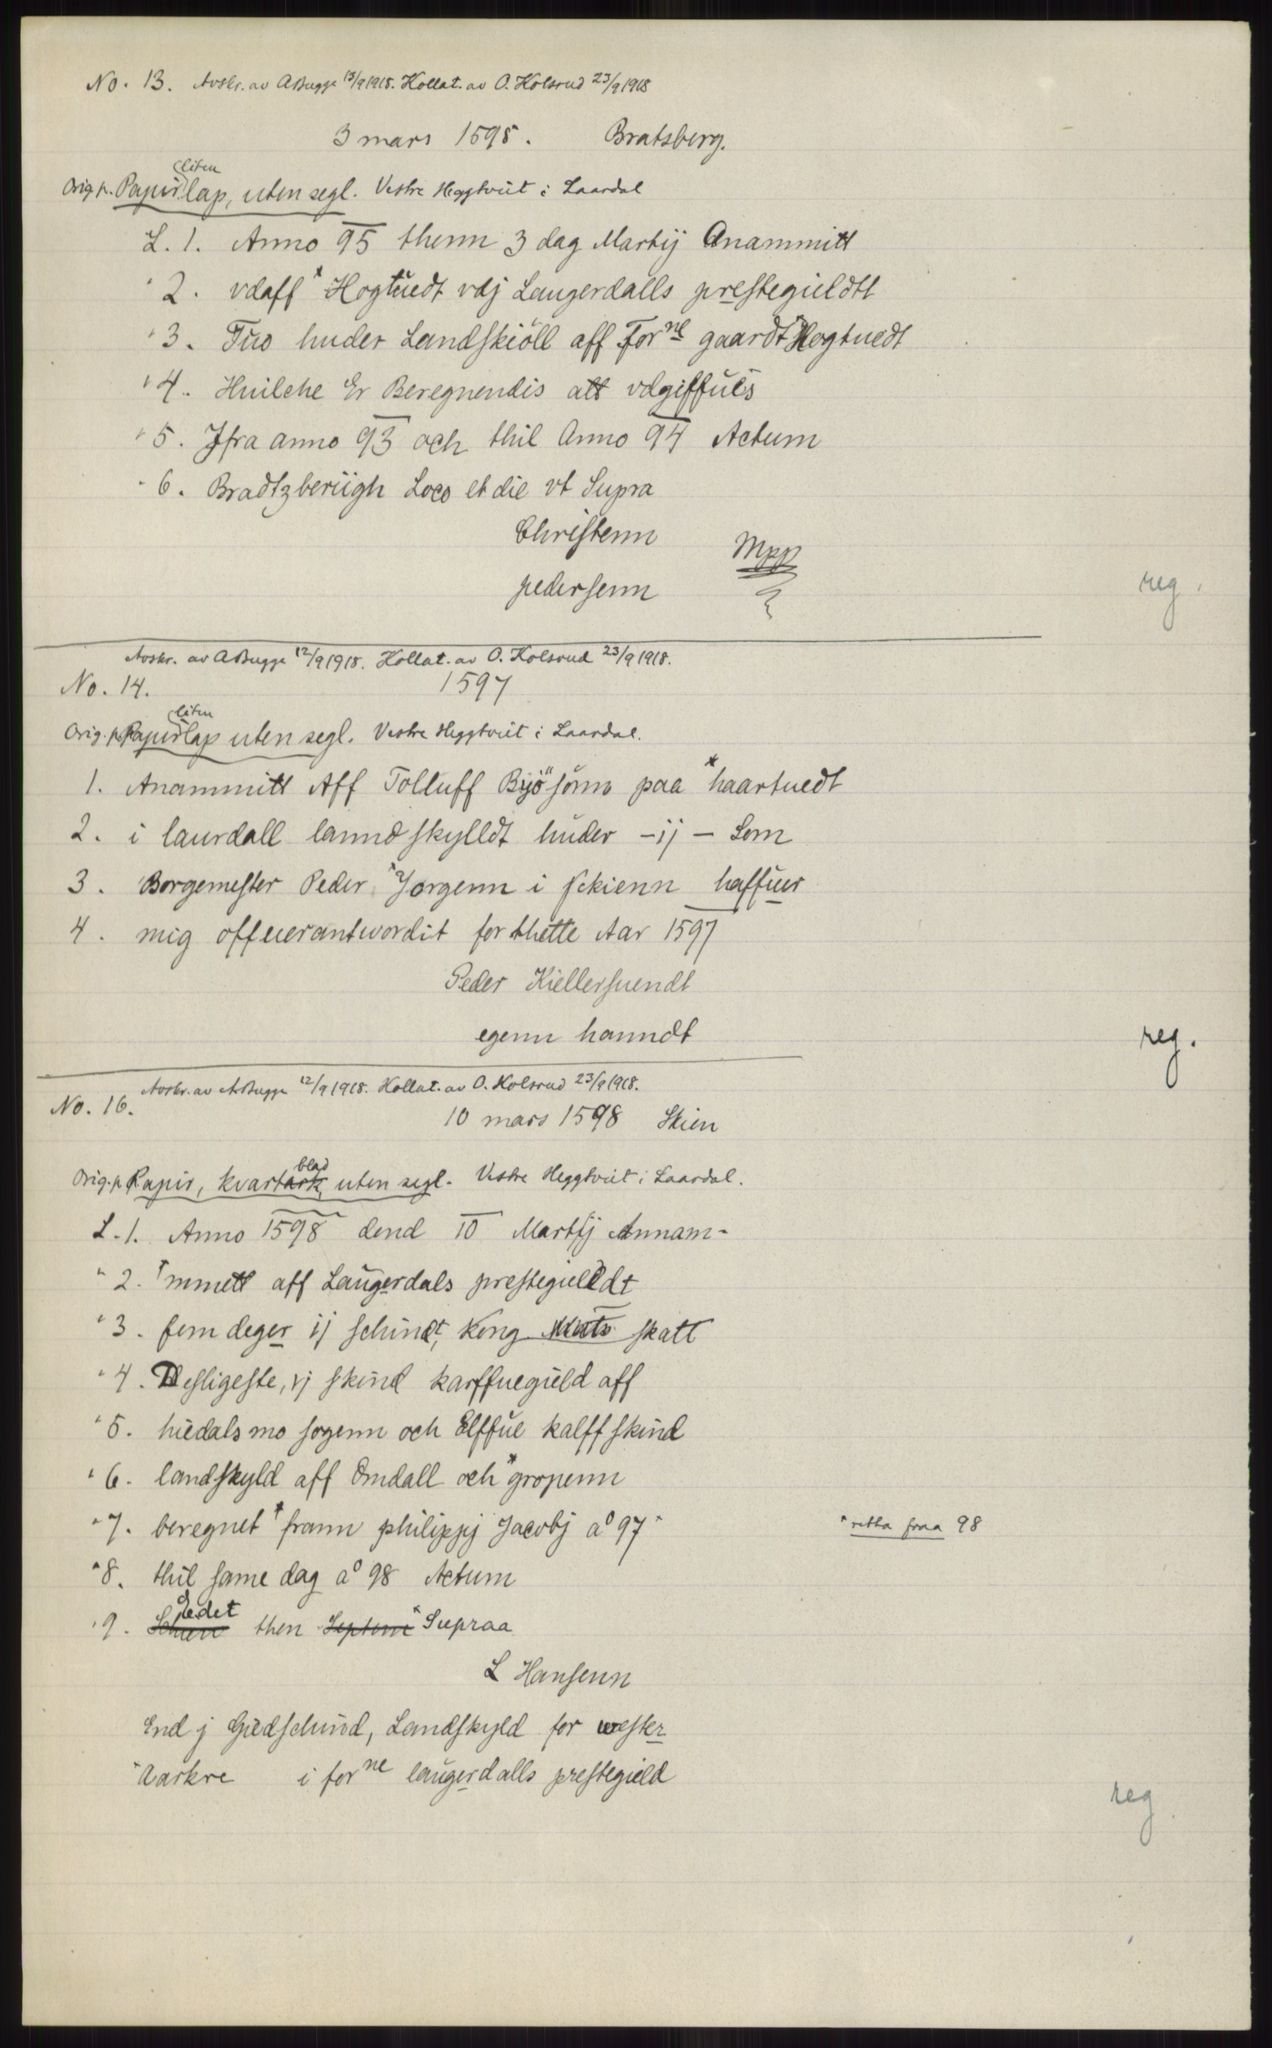 No. 13. Avskr. av ABugge 13/9 1918. Kollat. av O. Kolsrud 23/9 1918
3 mars 1595. Bratsberg.
Orig. p. Papir liten lap, uten segl. Vestre Heggtveit i Laardal
L. 1. Anno 95 thenn 3 dag Martij Anammitt
" 2. vdaff *Hogtuedt vdj Laugerdalls prestegieldtt
" 3. Tuo huder Landskiöll aff For ne gaardt *Hogtuedt
" 4. Huilche Er Beregnendis att vdgiffuis
" 5. Jfra anno 93 och thil Anno 94 Actum
" 6. Bradtzberiigh Loco et die vt Supra
Christenn Mpp
pedersenn
reg.
Avskr. av ABugge 12/9 1918. Kollat. av O. Kolsrud 23/9 1918.
No. 14. 1597
Orig. p. Papir liten lap uten segl. Vestre Heggtveit i Laardal.
1. Anammitt Aff Tolluff Bijö" sönn paa *haartuedt
2. i laurdall lannd skylldt huder - ij - Som
3. Borgemester Peder *Jorgenn i Skienn haffuer
4. mig offuerantwordit for thette Aar 1597
Peder Kiellersuendt
egenn hanndt
reg.
Avskr. av ABugge 12/9 1918. Kollat. av O. Kolsrud 23/9 1918.
No. 16.
10 mars 1598 Skien
Orig. p. Papir, kvartark blad, uten segl. Vestre Heggtveit i Laardal.
L. 1. Anno 1598 dend 10 Martij Annam-
" 2. *mmett aff Laugerdals prestegieldt
" 3. fem deger ij schindt, Kong Matts skatt
" 4. Desligeste, vj skind karffuegield aff
" 5. hiedals mo sogenn och Elffue kalff skind
" 6. landskyld aff Omdall och *gropenn
" 7. beregnet *frann philippj Jacobj ao 97 *
* retta fraa 98
" 8. thil same dag ao 98 Actum
" 9. Schien Stedet then Septem *Supraa
L Hansenn
End j Giedschind, Landskyld for wester
*Aarkre i for ne laugerdalls prestegield
reg